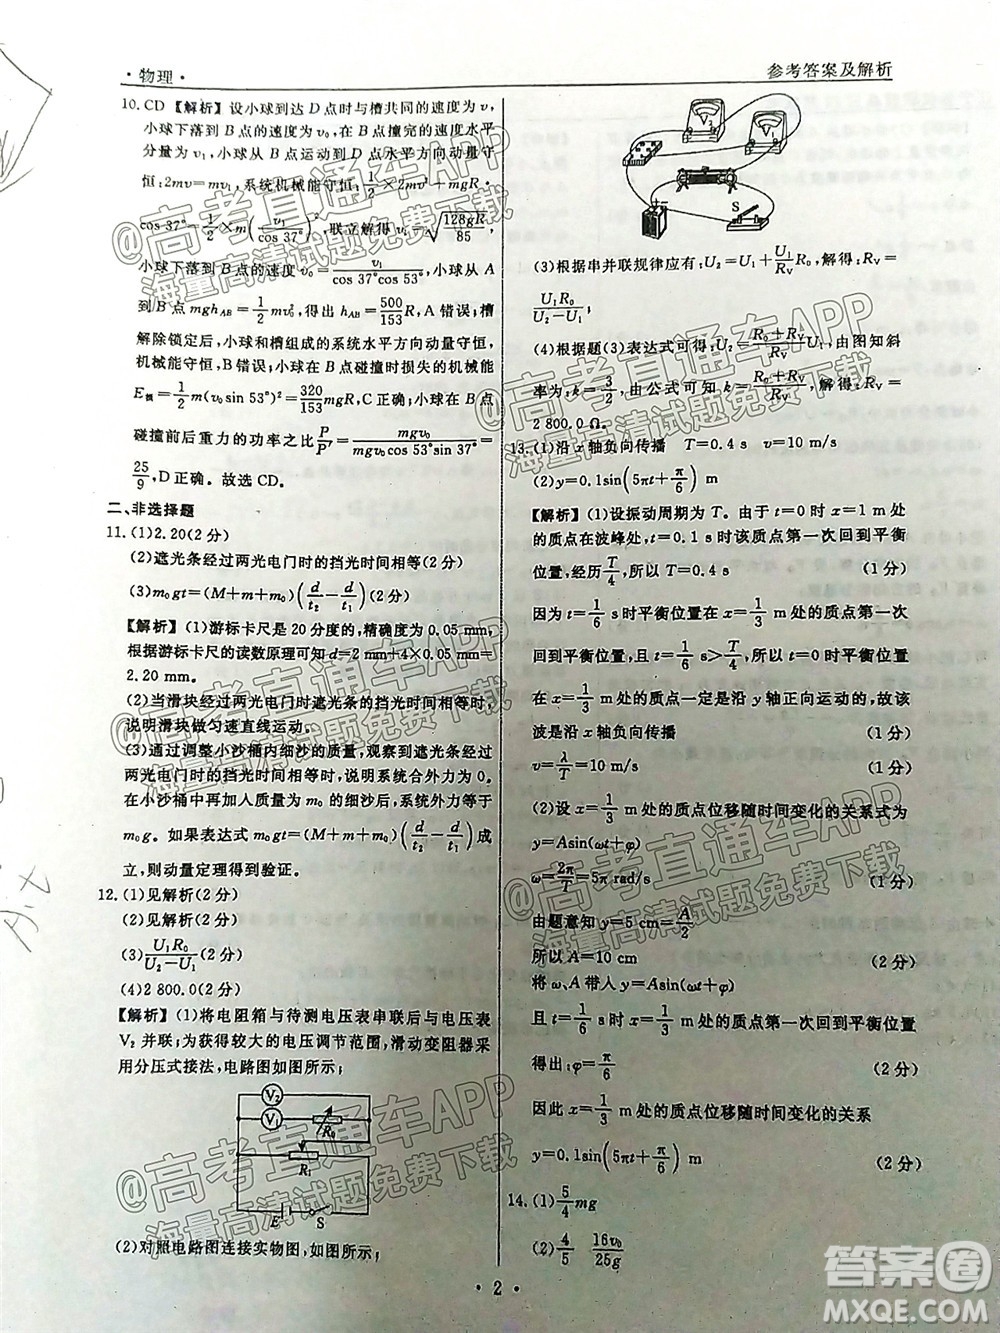 ·物理·
参考答案及解析
10.CD【解析】设小球到达D点时与槽共同的速度为v,
小球下落到B点的速度为v₀,在B点撞完的速度水平
分量为v₁,小球从B点运动到D点水平方向动量守
恒:2mv=mv₁,系统机械能守恒:1/2×2mv²+mgR·
cos 37°=1/2×m(v₁/cos 37°)²,联立解得v₁=√(128gR/85),
小球下落到B点的速度v₀=v₁/(cos 37°cos 53°),小球从A
到B点mgh_AB=1/2mv₀²,得出h_AB=500/153R,A错误;槽
解除锁定后,小球和槽组成的系统水平方向动量守恒,
机械能守恒,B错误;小球在B点碰撞时损失的机械能
E损=1/2m(v₀sin 53°)²=320/153mgR,C正确;小球在B点
碰撞前后重力的功率之比P/P′=mgv₀/(mgv₀cos 53°sin 37°)=
25/9,D正确。故选CD。
二、非选择题
11.(1)2.20(2分)
(2)遮光条经过两光电门时的挡光时间相等(2分)
(3)m₀gt=(M+m+m₀)(d/t₂-d/t₁)(2分)
【解析】(1)游标卡尺是20分度的,精确度为0.05 mm,
根据游标卡尺的读数原理可知d=2 mm+4×0.05 mm=
2.20 mm。
(2)当滑块经过两光电门时遮光条的挡光时间相等,
说明滑块做匀速直线运动。
(3)通过调整小沙桶内细沙的质量,观察到遮光条经过
两光电门时的挡光时间相等时,说明系统合外力为0。
在小沙桶中再加人质量为m₀的细沙后,合外力变为
m₀g。如果表达式m₀gt=(M+m+m₀)(d/t₂-d/t₁)成
立,则动量定理得到验证。
12.(1)见解析(2分)
(2)见解析(2分)
(3)U₁R₀/(U₂-U₁)(2分)
(4)2 800.0(2分)
【解析】(1)将电阻箱与待测电压表串联后与电压表
V₂并联;为获得较大的电压调节范围,滑动变阻器采
用分压式接法,电路图如图所示;
V₂
V₁
R₀
R₁
E
S
(2)对照电路图连接实物图,如图所示;
V₂
V₁
S
(3)根据串并联规律应有:U₂=U₁+U₁/R_V R₀,解得:R_V=
U₁R₀/(U₂-U₁)
(4)根据题(3)表达式可得:U₂=(R₀+R_V)/R_V U₁,由图知斜
率为:k=3/2,由公式可知k=(R₀+R_V)/R_V,解得:R_V=
2 800.0 Ω。
13.(1)沿x轴负向传播 T=0.4 s v=10 m/s
(2)y=0.1sin(5πt+π/6) m
【解析】(1)设振动周期为T。由于t=0时x=1 m处
的质点在波峰,t=0.1 s时该质点第一次回到平衡
位置,经历T/4,所以T=0.4 s (1分)
因为t=1/6 s时平衡位置在x=1/3 m处的质点第一次
回到平衡位置,1/6 s>T/4,所以t=0时平衡位置
在x=1/3 m处的质点一定是沿y轴正向运动的,故该
波是沿x轴负向传播 (1分)
v=λ/T=10 m/s (1分)
(2)设x=1/3 m处的质点位移随时间变化的关系式为
y=Asin(ωt+φ)
ω=2π/T=5π rad/s (1分)
由题意知y=5 cm=A/2
所以A=10 cm (2分)
将ω、A带人y=Asin(ωt+φ)
且t=1/6 s时x=1/3 m处的质点第一次回到平衡位置
得出:φ=π/6 (2分)
因此x=1/3 m处的质点位移随时间变化的关系
y=0.1sin(5πt+π/6) m (2分)
14.(1)5/4mg
(2)4/5 16v₀/25g
·2·
@高考直通车APP
海量高清试题免费下载
答案圈
MXQE.COM